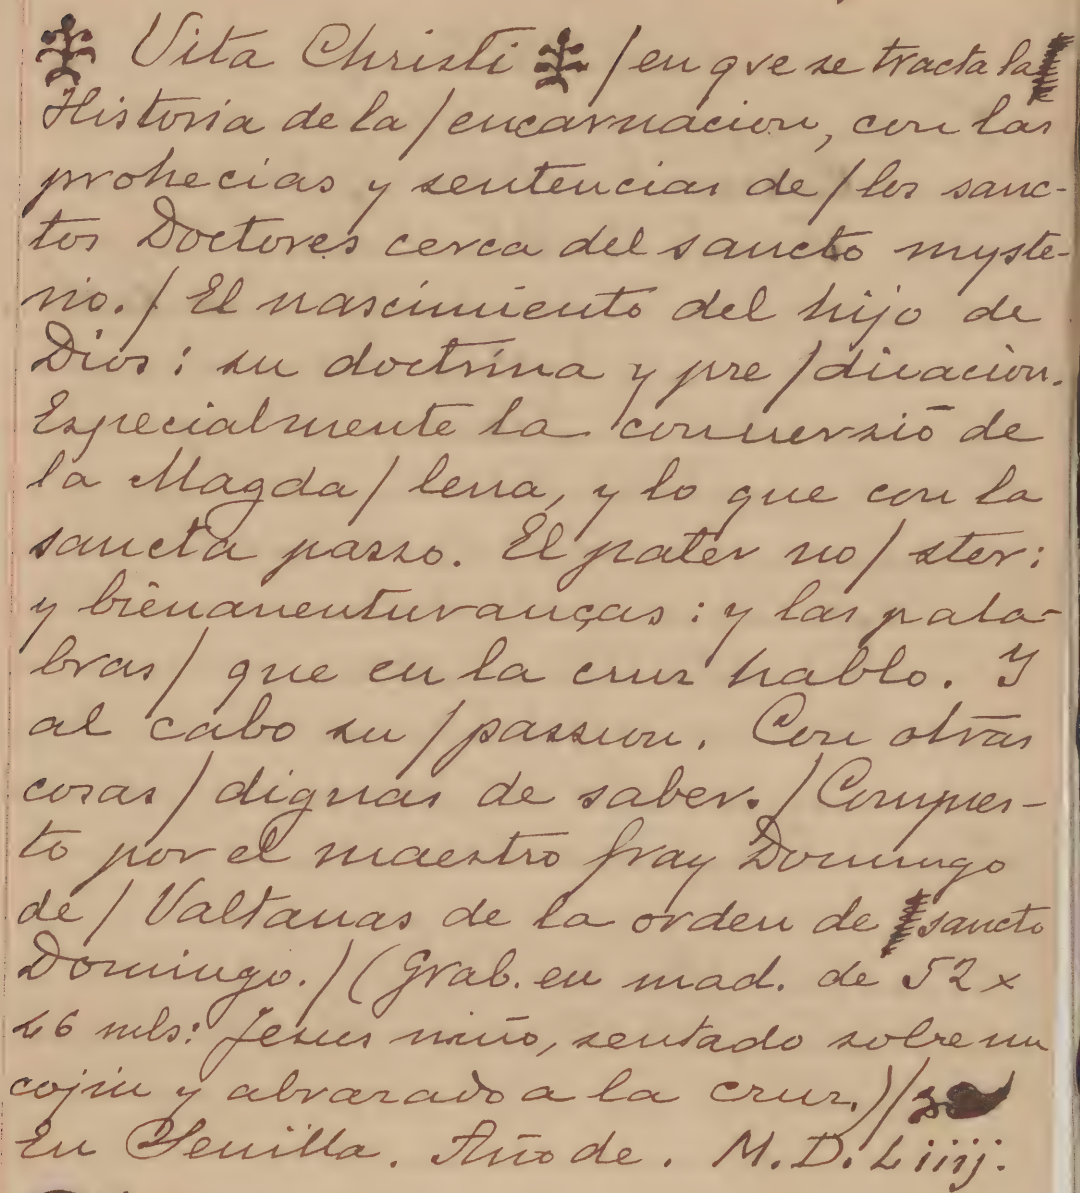 Vita Christi / en qve se tracta la
Historia de la / encarnacion, con las
prohecias y sentencias de / los sanc-
tos Doctores cerca del sancto myste-
rio. / El nascimiento del hijo de
Dios: su doctrina y pre / dicacion.
Especialmente la conuersiō de
la Magda / lena, y lo que con la
sancta passo. El pater no / ster:
y bienauenturanças: y las pala-
bras / que en la cruz hablo. Y
al cabo su / passion. Con otras
cosas / dignas de saber. / Compues-
to por el maestro fray Domingo
de / Valtanas de la orden de sancto
Domingo. / (Grab. en mad. de 52 x
46 mls: Jesus niño, sentado sobre un
cojin y abrazado a la cruz.) /
En Seuilla. Año de. M.D.Liiij.